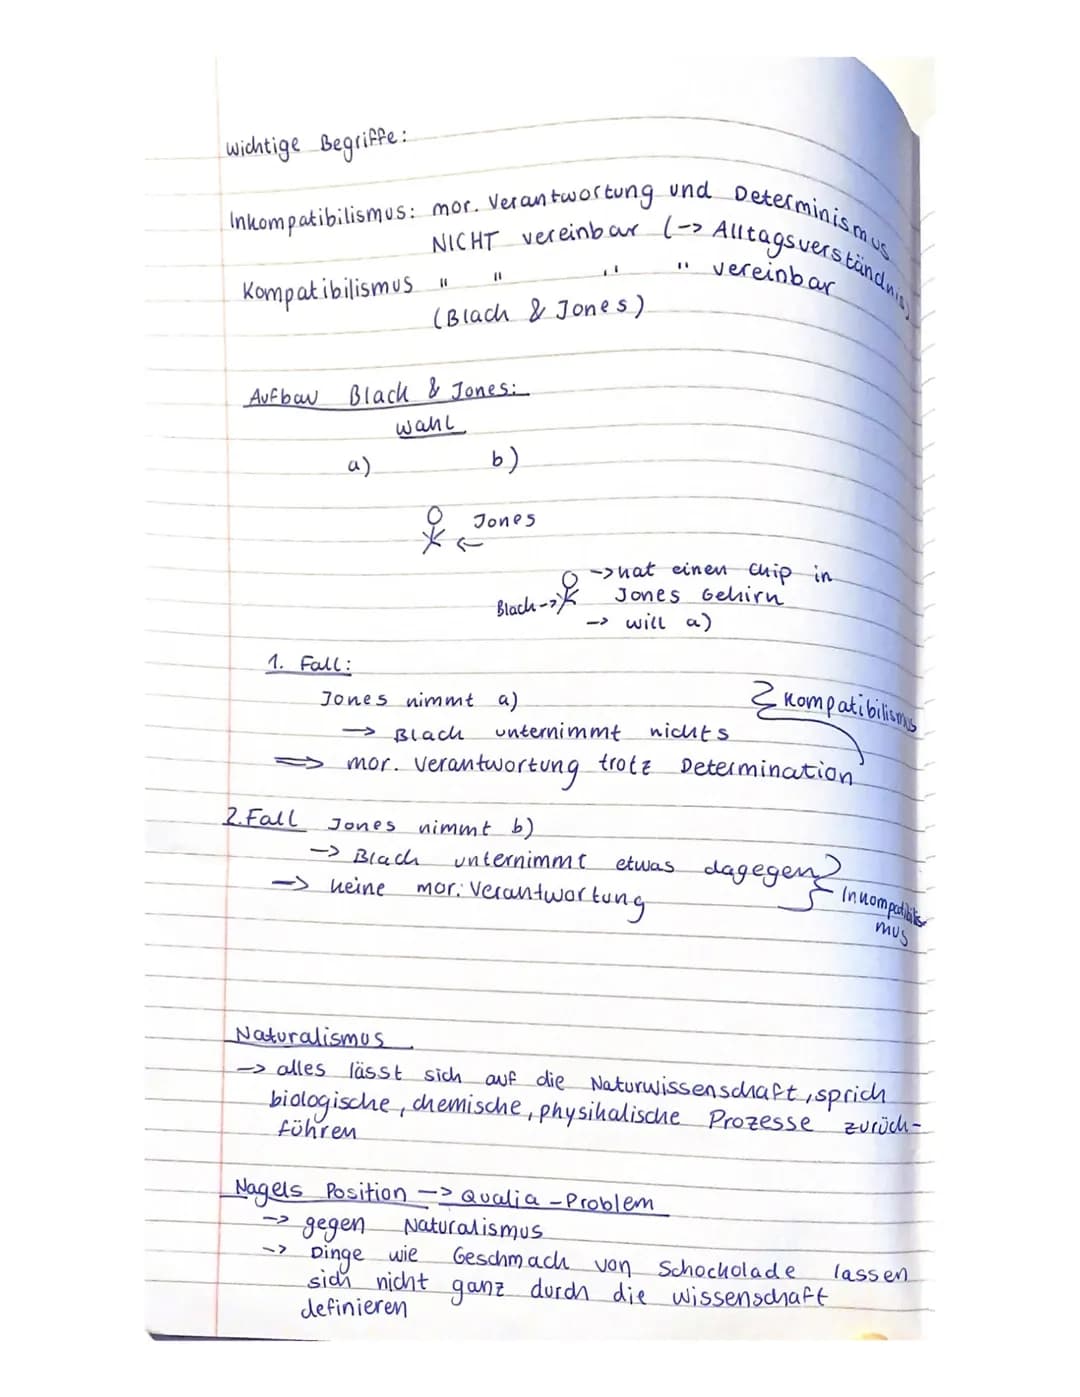 wichtige Begriffe:
Inkompatibilismus: mor. Verantwortung und Determinismus
NICHT vereinbar (-> Alltagsverständnis)
Kompatibilismus " " " " vereinbar
(Black & Jones)
Aufbau Black & Jones:
Wahl
a) b)
Jones
->hat einen Chip in
Black-> Jones Gehirn
-> will a)
1. Fall:
Jones nimmt a) Kompatibilismus
-> Black unternimmt nichts
=> mor. Verantwortung trotz Determination
2.Fall Jones nimmt b)
-> Black unternimmt etwas dagegen
-> keine mor. Verantwortung Inkompatibilis
mus
Naturalismus
-> alles lässt sich auf die Naturwissenschaft, sprich
biologische, chemische, physikalische Prozesse zurück-
führen
Nagels Position -> Qualia-Problem
-> gegen Naturalismus
-> Dinge wie Geschmack von Schockolade lassen
sich nicht ganz durch die Wissenschaft
definieren